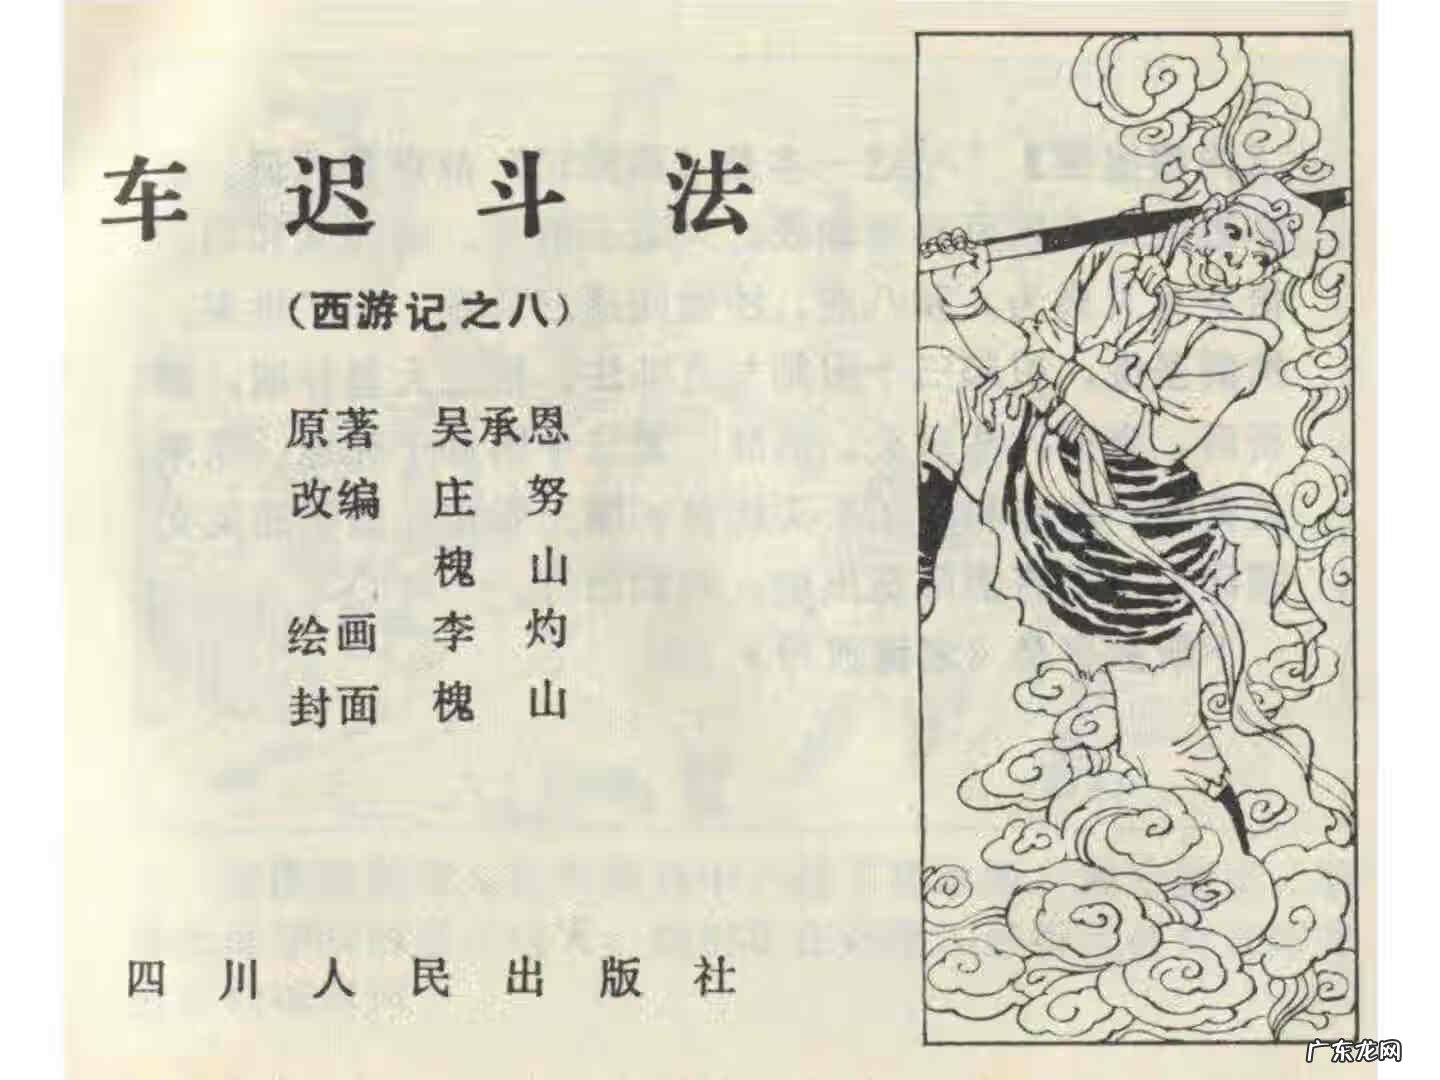 车迟斗法
（西游记之八）
原著 吴承恩
改编 庄努
槐山
绘画 李灼
封面 槐山
四川人民出版社
广东龙网